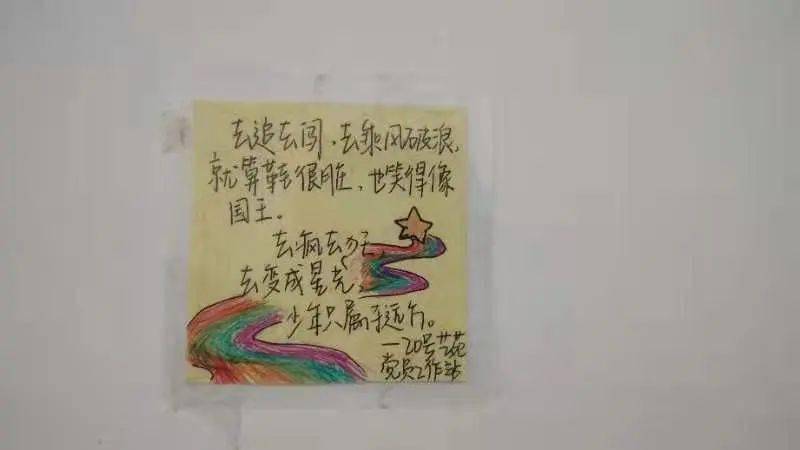 去追去闯，去乘风破浪，
就算鞋很脏，也笑得像
国王。
去疯去狂，
去变成星光，
少年只属于远方。
—20号艺苑
党员工作站